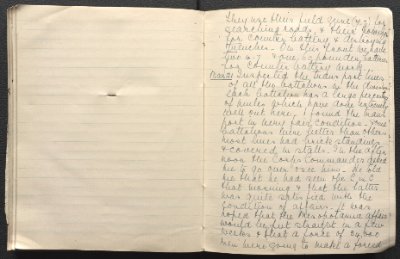 They use their field guns (4.2") for
searching roads, & their howitzers
for counter battery & destroying
trenches. On this front we have
two 4.7 & one 60 pounder batteries
for counter battery work.
Inspected the Indian port lines
of all the battalions in the Division
Each battalion has a large percentage
of mules which have done extremely
well out here, I found the main
port in very fair condition. Some
battalions were better than others,
most lines had brick standings
& covered in stalls. In the after
noon the Corps Commander asked
me to go over & see him. He told
me that he had seen the C in C
that morning & that the latter
was quite satisfied with the
condition of affairs. It was
hoped that the Mesopotamia affair
would be put straight in a few
weeks & that a force of
men were going to make a forced